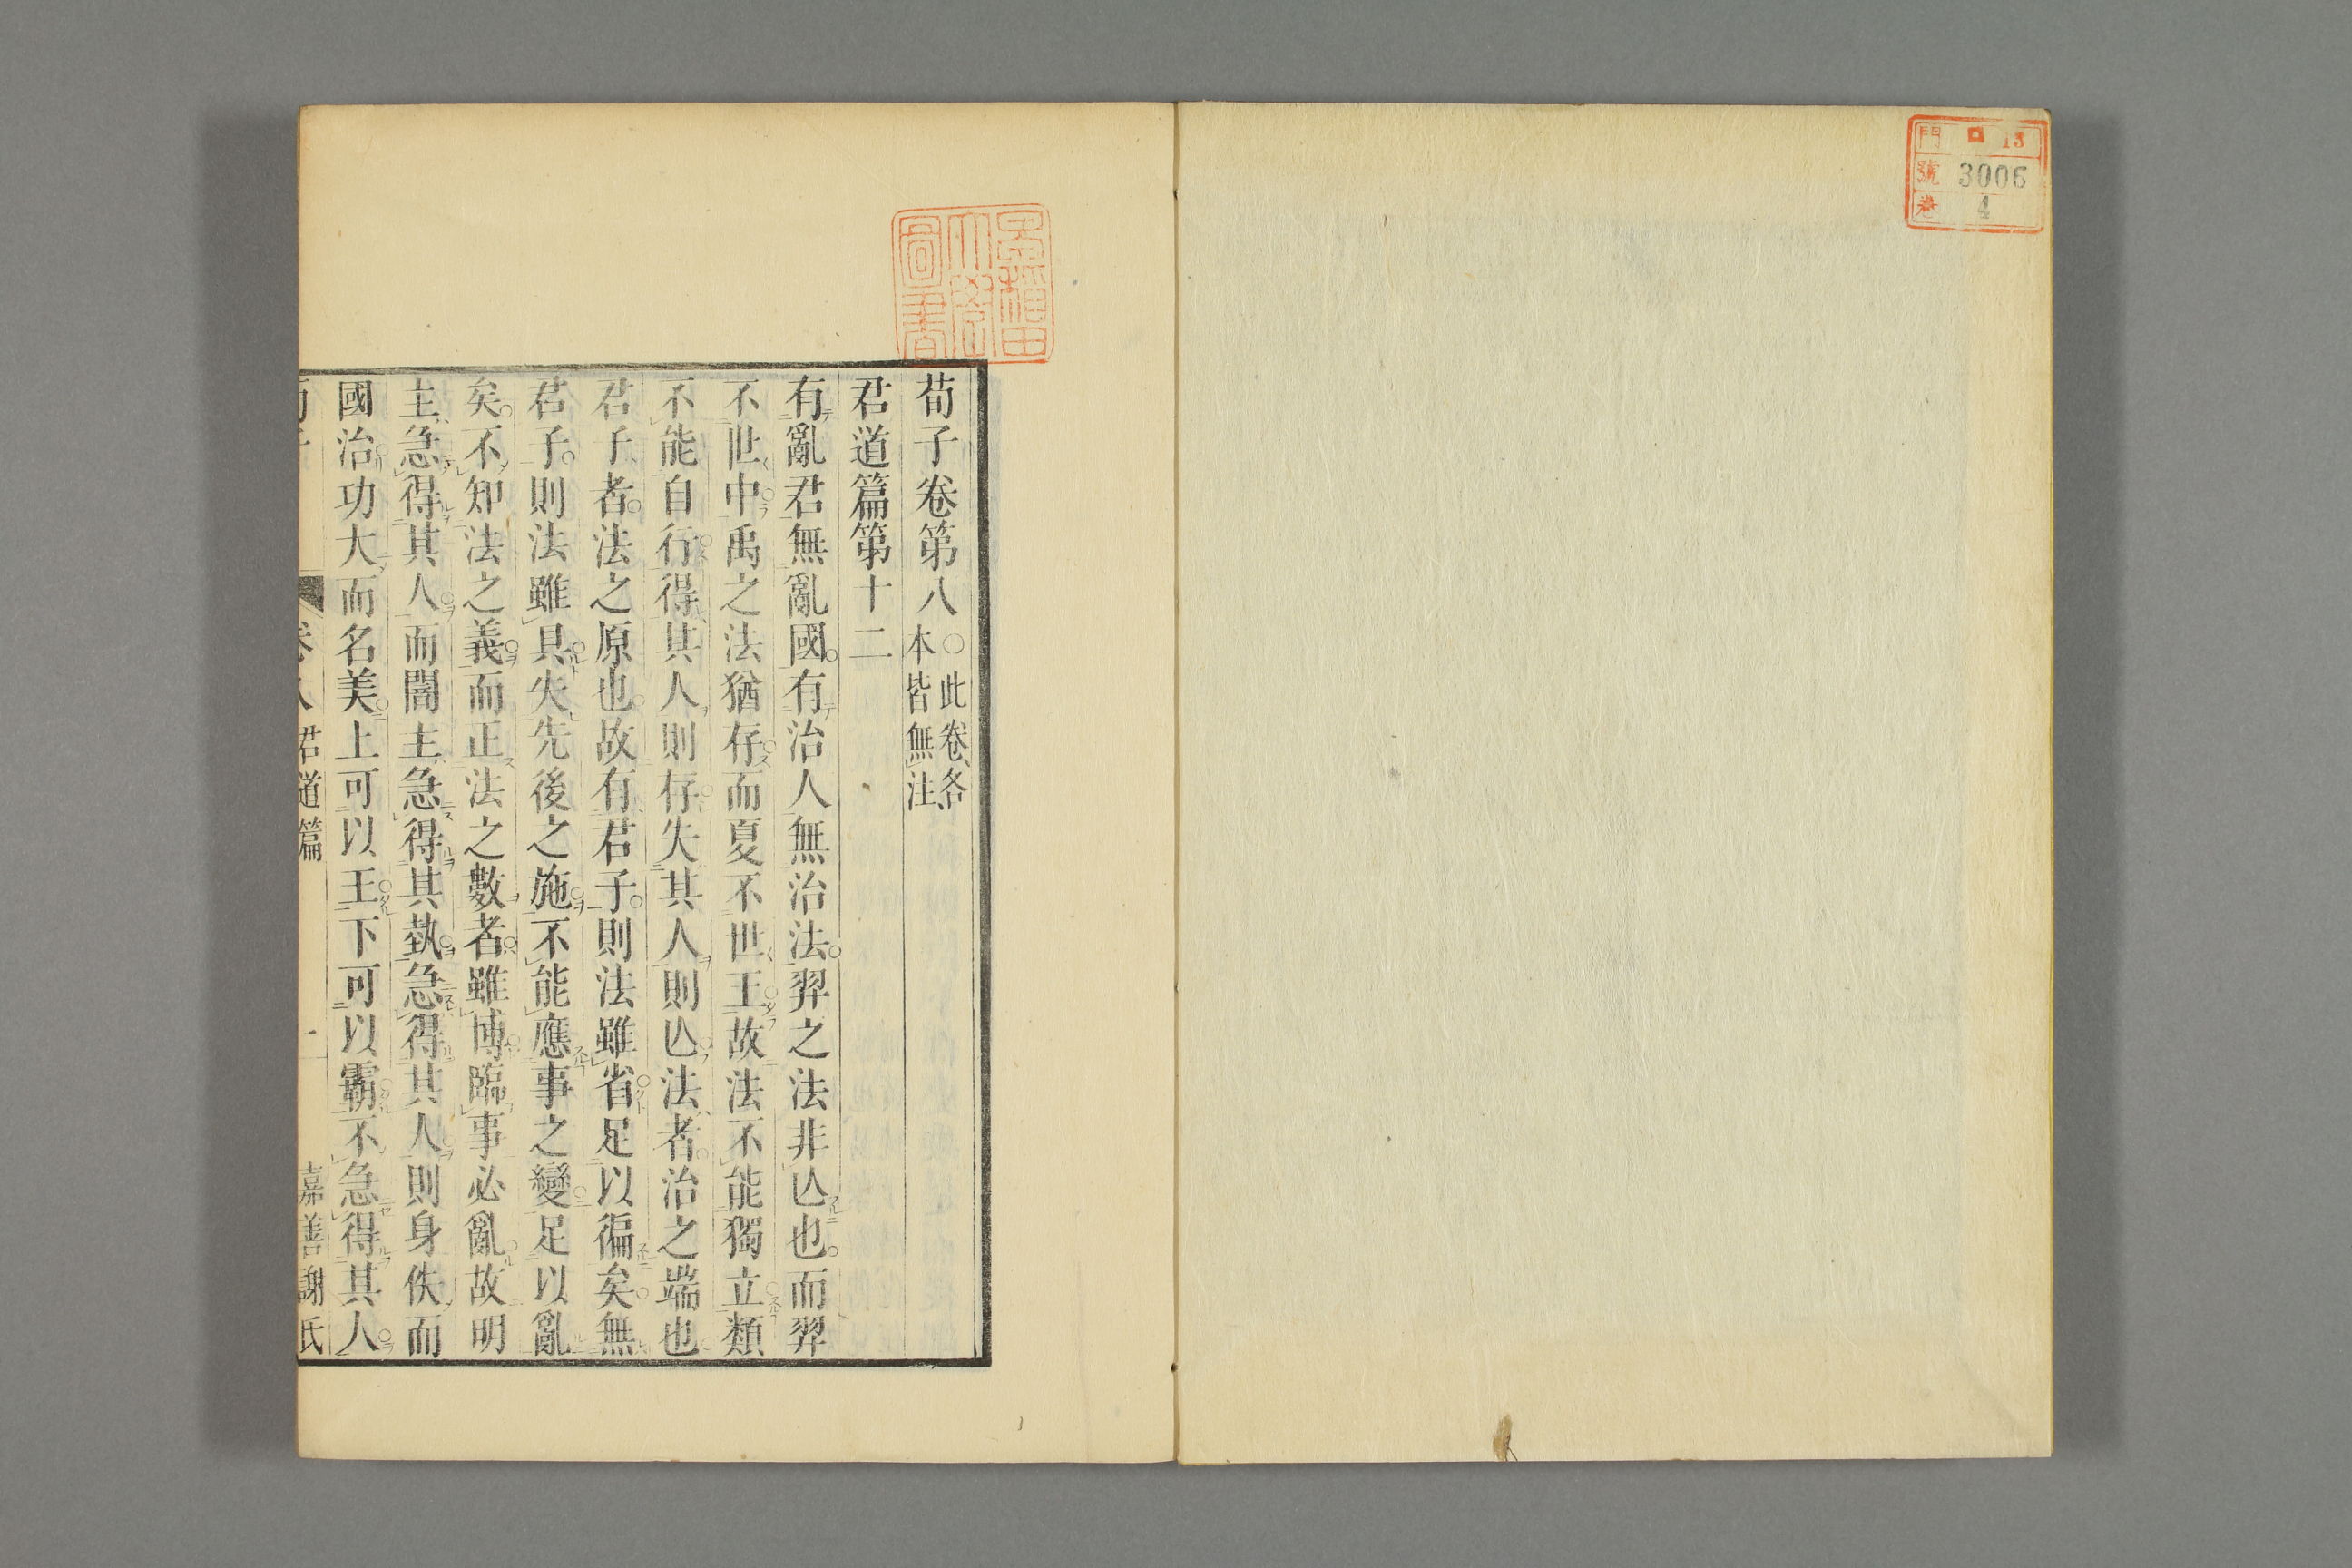 門 ロ 13
號 3006
卷 4
早稲田
大學
圖書
荀子卷第八 ○此卷各
本皆無注
君道篇第十二
有亂君無亂國有治人無治法羿之法非亾也而羿
不世中禹之法猶存而夏不世王故法不能獨立類
不能自行得其人則存失其人則亾法者治之端也
君子者法之原也故有君子則法雖省足以徧矣無
君子則法雖具失先後之施不能應事之變足以亂
矣不知法之義而正法之數者雖博臨事必亂故明
主急得其人而闇主急得其埶急得其人則身佚而
國治功大而名美上可以王下可以霸不急得其人
卷八 君道篇 一 嘉善謝氏